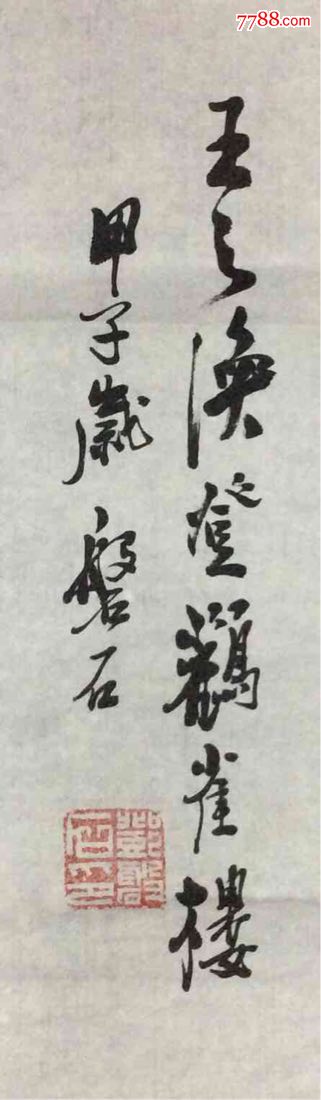 7788.com
王之涣登鸛雀楼
甲子歳 磐石